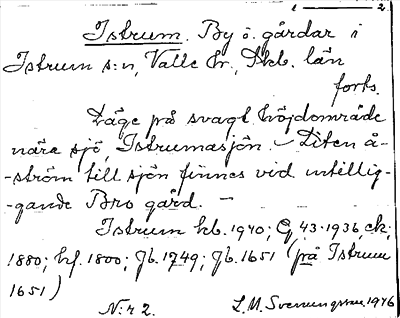 1 — 2
Istrum. By o. gårdar i
Istrum s:n, Valle hr., Skb. län
forts.
Läge på svagt höjdområde
nära sjö, Istrumasjön. – Liten å-
-ström till sjön finnes vid intillig-
-gande Bro gård. –
Istrum kb. 1940; G 43-1936, ek.
1880; hf. 1800; Jb. 1749; Jb. 1651 (på Istrum
1651)
N:r 2. L. M. Svenungsson 1946